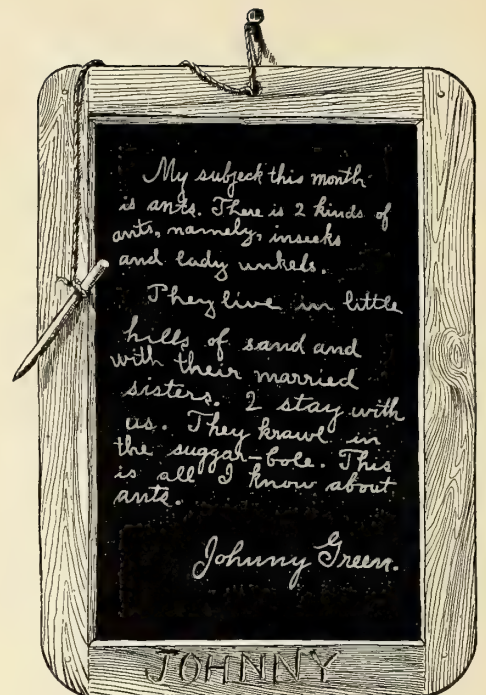 My subjeck this month
is ants. There is 2 kinds of
ants, namely, inseeks
and lady unkels.
They live in little
hills of sand and
with their married
sisters. 2 stay with
us. They krawl in
the suggar-bole. This
is all I know about
ants.
Johnny Green.
JOHNNY